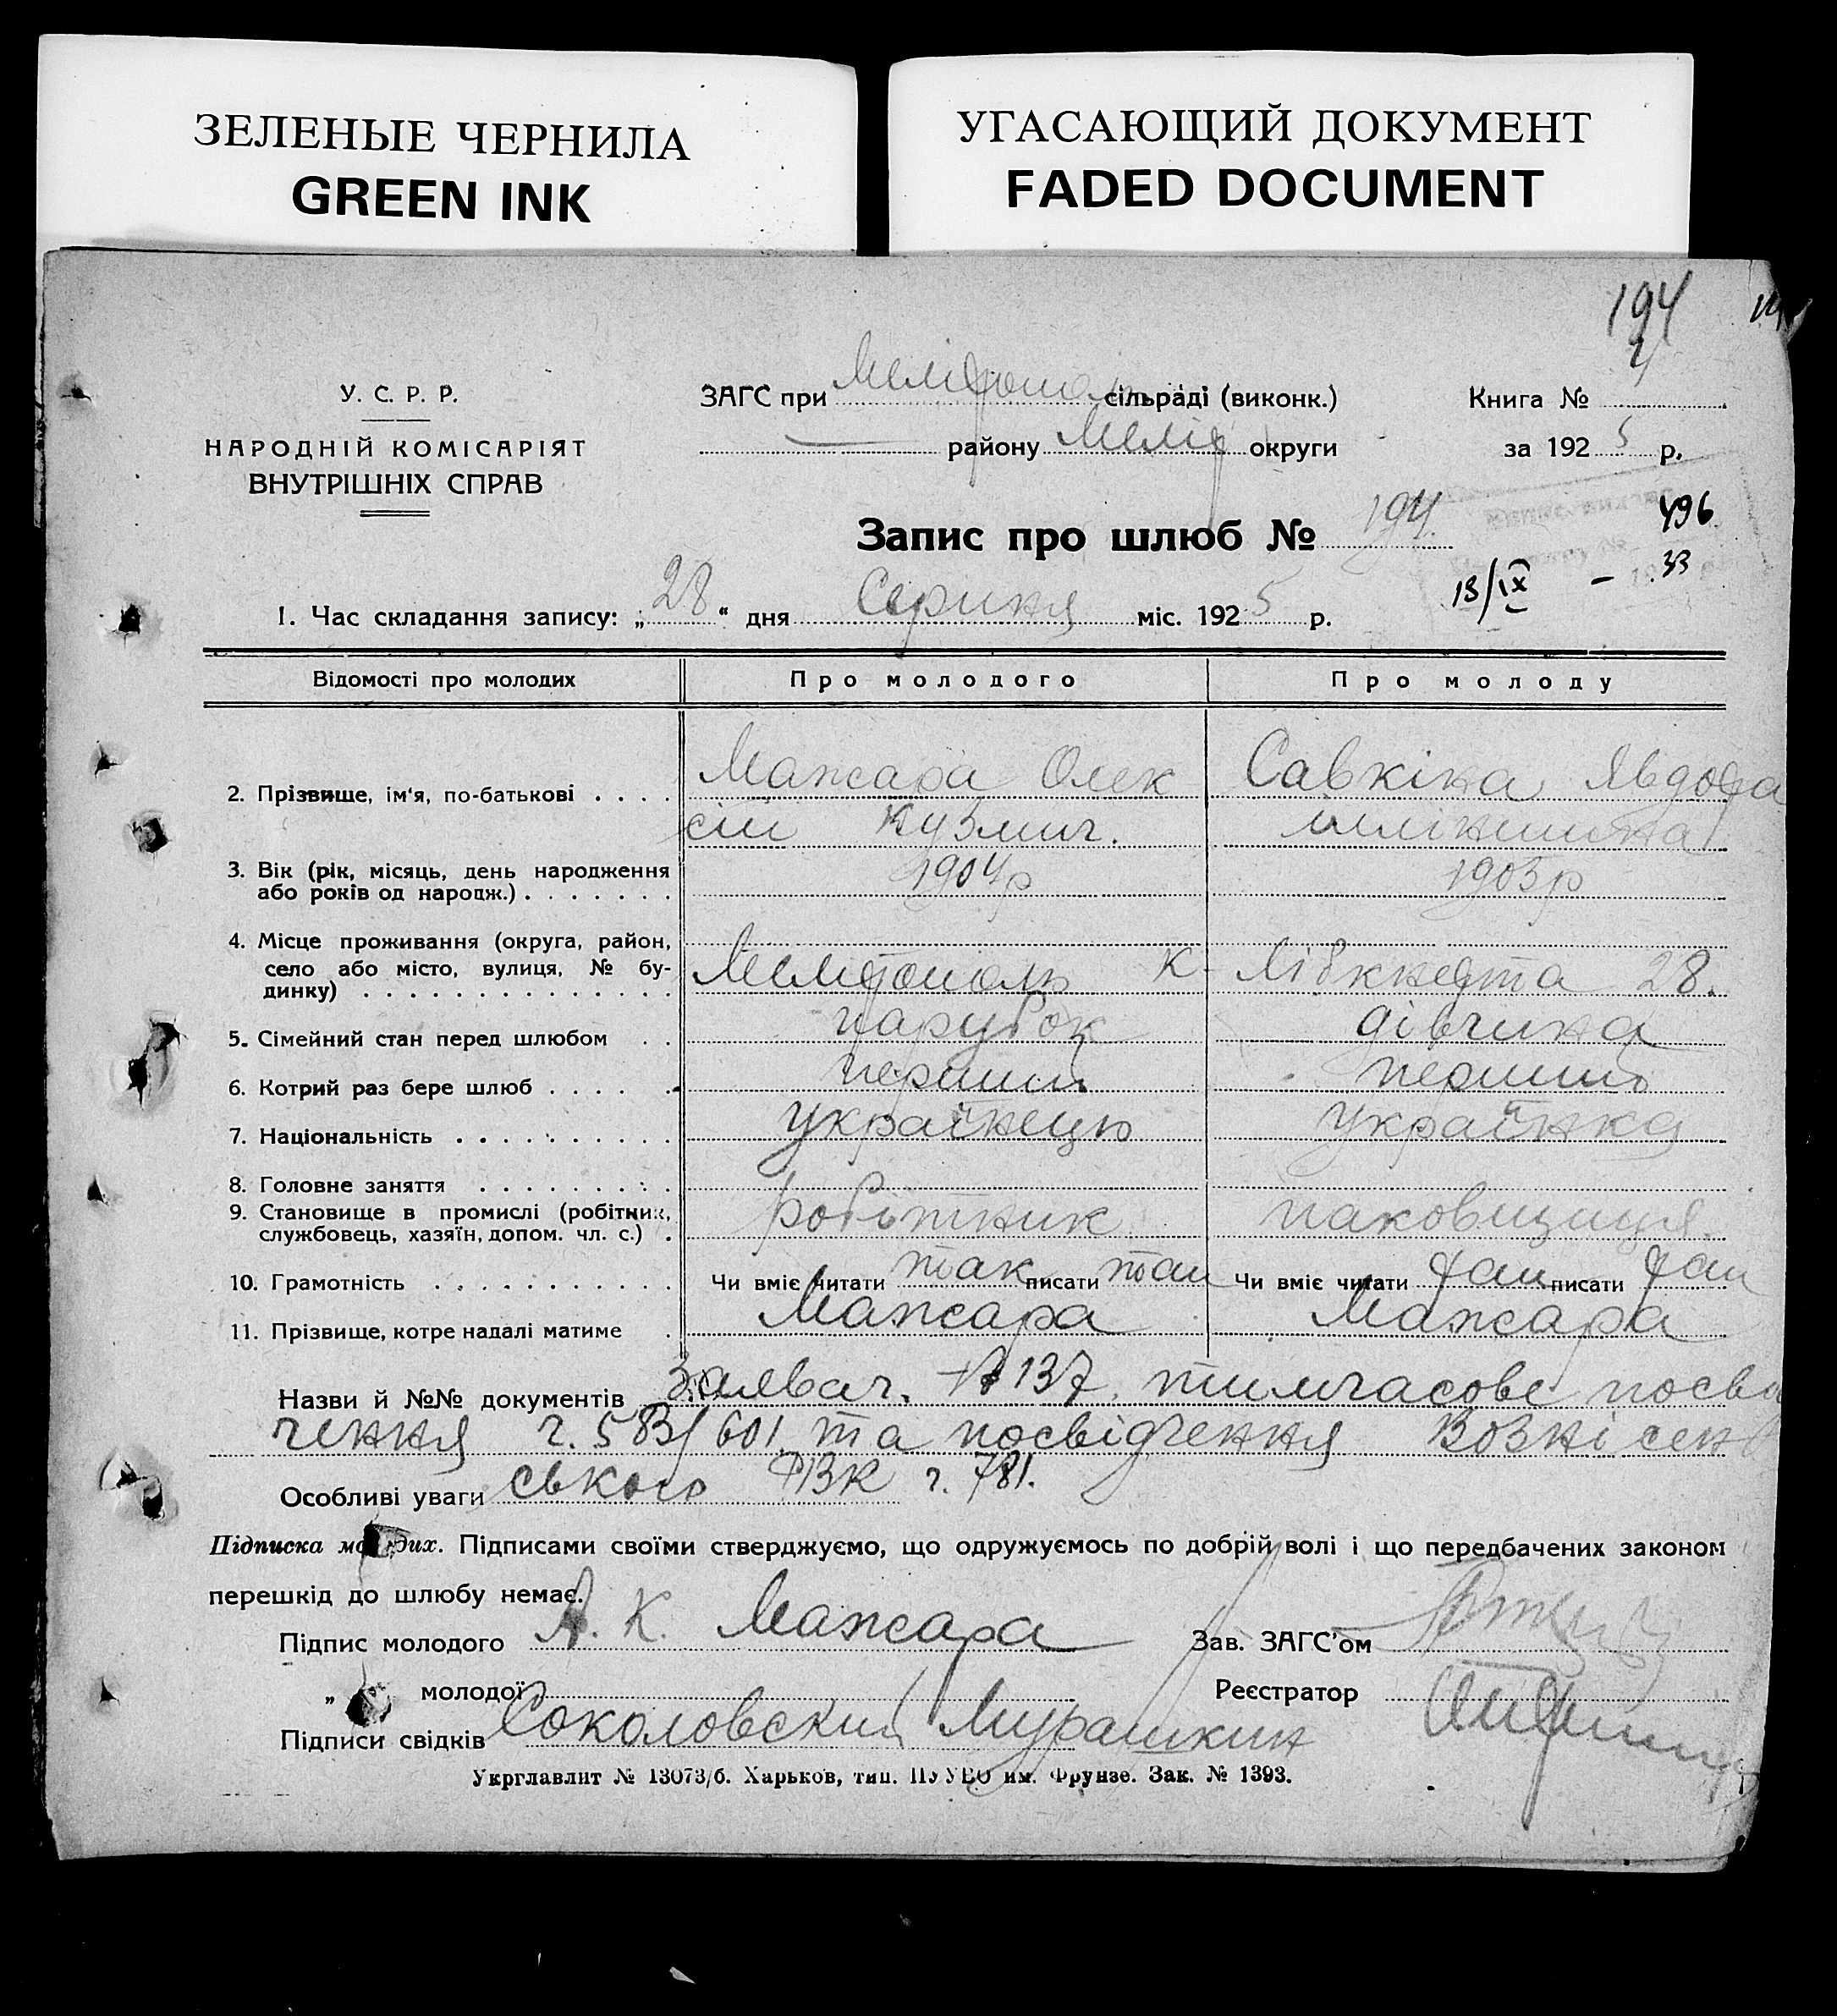 ЗЕЛЕНЫЕ ЧЕРНИЛА
GREEN INK
УГАСАЮЩИЙ ДОКУМЕНТ
FADED DOCUMENT
194
У. С. Р. Р.
НАРОДНІЙ КОМІСАРІЯТ
ВНУТРІШНІХ СПРАВ
ЗАГС при Меліտополь сільраді (виконк.)
району Меліт округи
Книга №
за 1925 р.
Запис про шлюб № 194.
496
13/IX - 33
1. Час складання запису: „28“ дня Серпня міс. 1925 р.
Відомості про молодих Про молодого Про молоду
2. Прізвище, ім‘я, по-батькові . . . . Мажара Олек Савкіна Явдоха
сій Кузмич.
3. Вік (рік, місяць, день народження
або років од народж.) . . . . . . . 1904р 1903р
4. Місце проживання (округа, район,
село або місто, вулиця, № бу-
динку) . . . . . . . . . . . . . . Мелітополь К- Лібкнехта 28.
5. Сімейний стан перед шлюбом . . парубок дівчина
6. Котрий раз бере шлюб . . . . . перший перший
7. Національність . . . . . . . . . . українець українка
8. Головне заняття . . . . . . . . .
9. Становище в промислі (робітник,
службовець, хазяїн, допом. чл. с.) . робітник паковщиця
10. Грамотність . . . . . . . . . . . Чи вміє читати так писати так Чи вміє читати так писати так
11. Прізвище, котре надалі матиме . Мажара Мажара
Назви й №№ документів Заява ч. 137. тимчасове посвід
чення ч. 583/601. та посвідчення Вознісен
Особливі уваги ського РВК ч. 781.
Підписка молодих. Підписами своїми стверджуємо, що одружуємось по добрій волі і що передбачених законом
перешкід до шлюбу немає.
Підпис молодого А. К. Мажара Зав. ЗАГС’ом
„ молодої Реєстратор
Підписи свідків Соколовский Мурашкин
Укрглавлит № 13073/б. Харьков, тип. ПУУВО им. Фрунзе. Зак. № 1393.